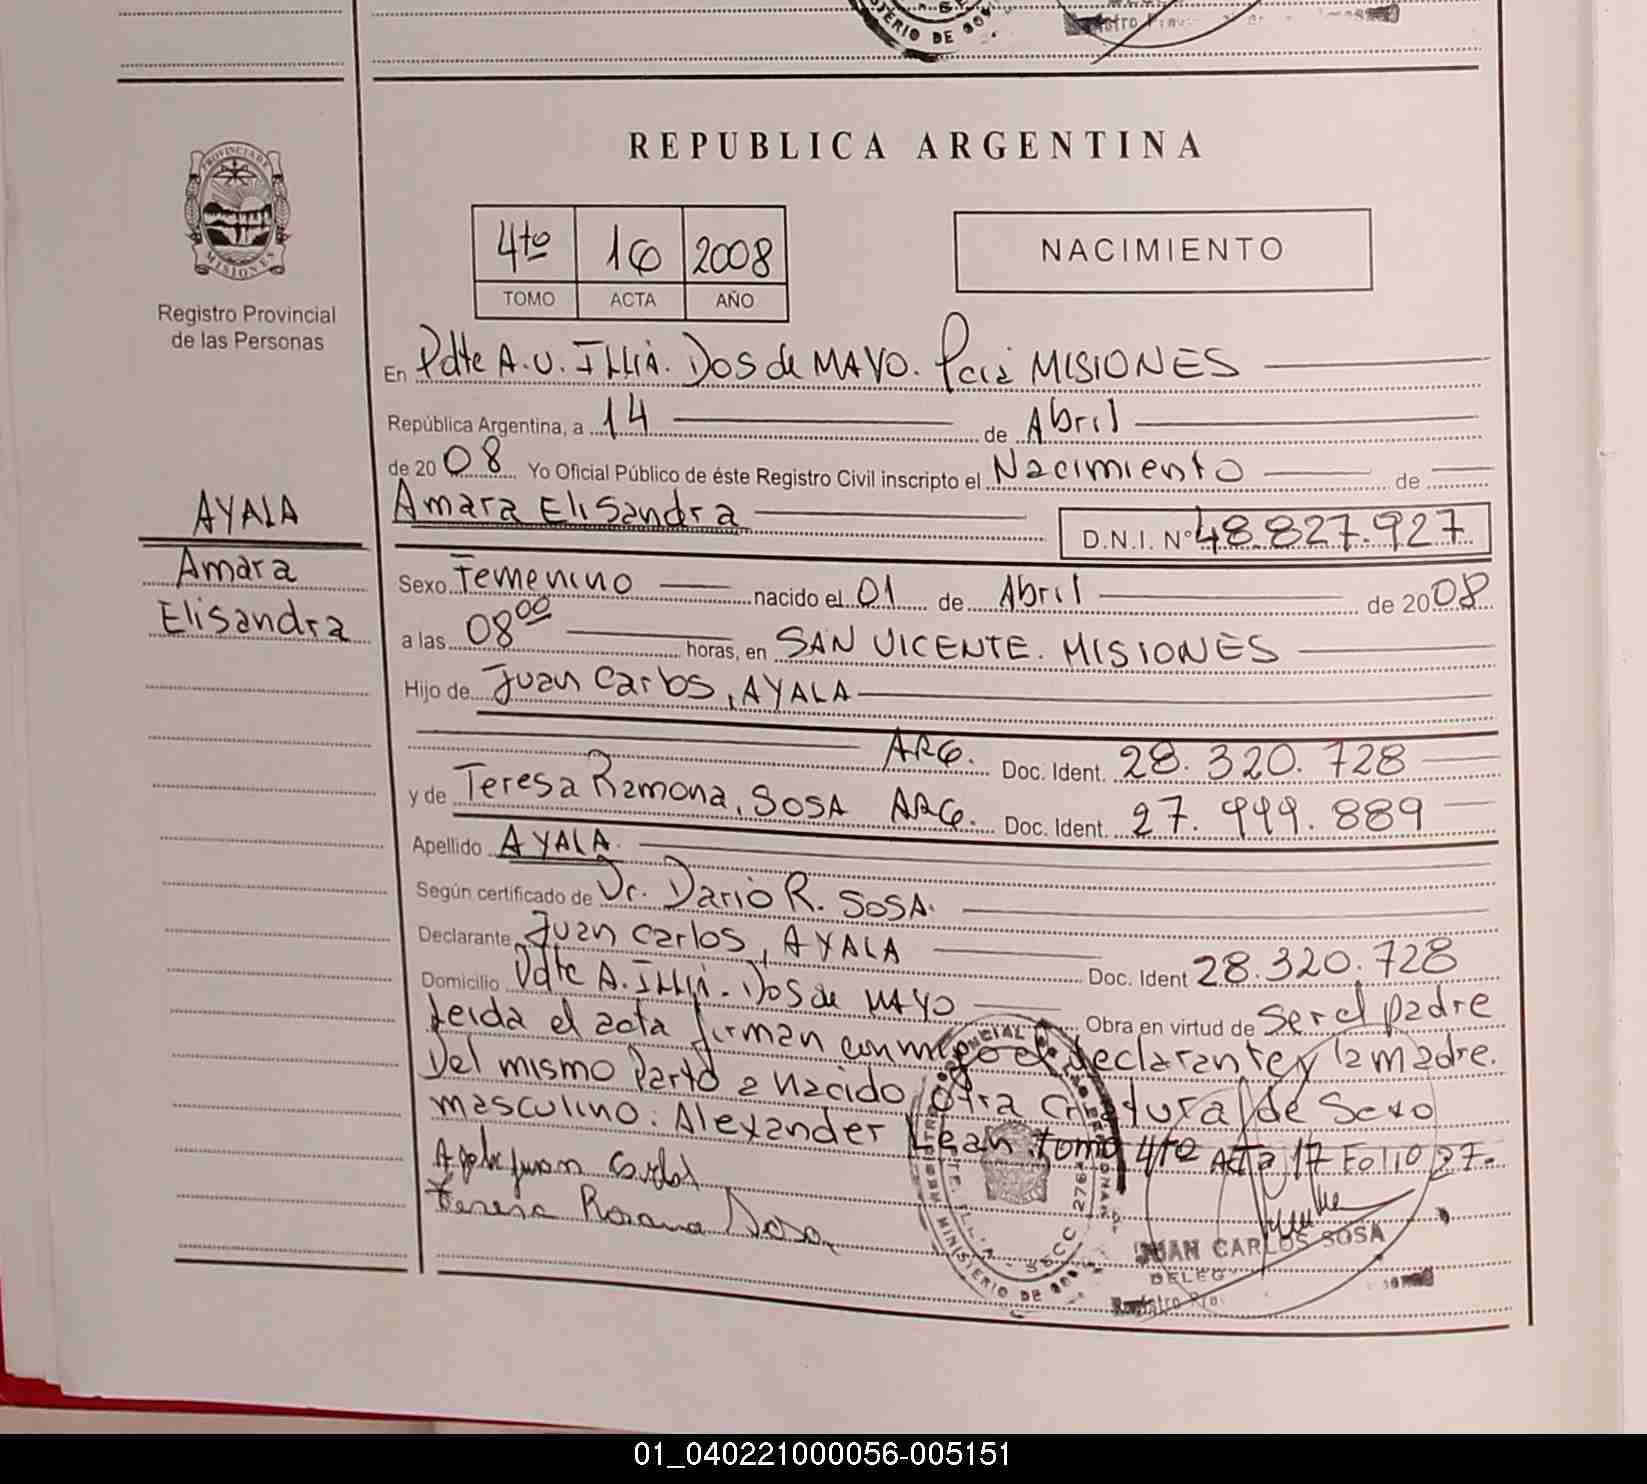 REPUBLICA ARGENTINA
PROVINCIA DE MISIONES
Registro Provincial
de las Personas
4to 16 2008
TOMO ACTA AÑO
NACIMIENTO
En Pdte A.U. ILLIA. Dos de MAYO. Pcia MISIONES
República Argentina, a 14 de Abril
de 2008 Yo Oficial Público de éste Registro Civil inscripto el Nacimiento de
Amara Elisandra D.N.I. Nº 48.827.927
AYALA
Amara
Elisandra
Sexo Femenino nacido el 01 de Abril de 2008
a las 08 00 horas, en SAN VICENTE. MISIONES
Hijo de Juan Carlos, AYALA
ARG. Doc. Ident. 28.320.728
y de Teresa Ramona, SOSA ARG. Doc. Ident. 27.999.889
Apellido AYALA.
Según certificado de Dr. Dario R. SOSA.
Declarante Juan Carlos, AYALA Doc. Ident 28.320.728
Domicilio Pdte A. ILLIA. Dos de MAYO Obra en virtud de Ser el padre
Leida el acta firman conmigo el declarante y la madre.
Del mismo Parto a nacido otra criatura de Sexo
masculino: Alexander Lean tomo 4to Acta 17 Folio 27.
Ayala Juan Carlos
Teresa Ramona Sosa
JUAN CARLOS SOSA
DELEG
Registro Pro
MINISTERIO DE GOB
01_040221000056-005151